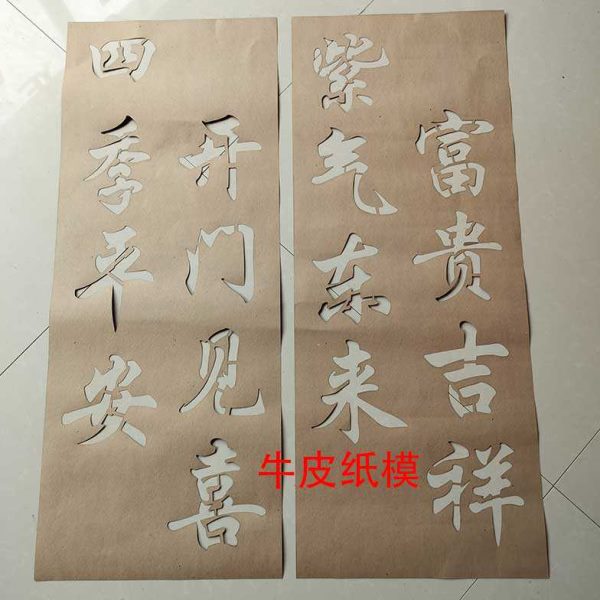 四季平安
开门见喜
紫气东来
富贵吉祥
牛皮纸模